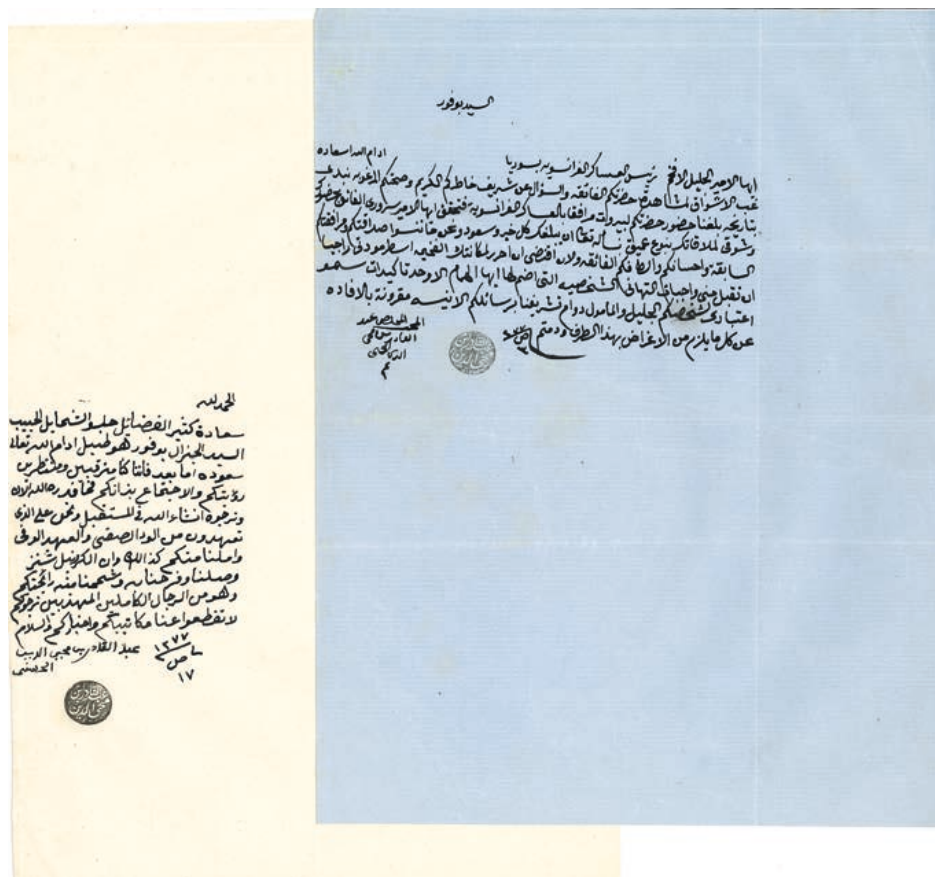 السيد بوفور
ادام الله اسعاده
ايها الامير الجليل الافخم رئيس العساكر الفرانسويه بسوريا
غب الاشواق لمشاهدة حضرتكم الفائقه والسؤال عن شريف خاطركم الكريم وصحتكم المرغوبه نبدي
بتاريخه بلغنا حضور حضرتكم لبيروت مرافقا بالعساكر الفرانسويه فتحقق ايها الامير سروري الفائق بحضوركم
وشوقي لملاقاتكم بنوع عميق نساله تعالى ان يبلغكم كل خير وسعود ونحن ما ننسوا صداقتكم ومرافقتكم
السابقة واحسانكم والطافكم الفائقه ولان اقتضى ان احرر لمكانتك الفخيمه اسطر مودتي راجيا
ان تقبل مني واجبات التهاني الشخصيه التي اضم لها ايها الهمام الاوحد تاكيدات سمو
اعتباري لشخصكم الجليل والمامول دوام تشريفنا برسائلكم الانيسه مقرونة بالافاده
عن كل ما يلزم من الاغراض بهذا الطرف ودمتم
المخلص عبد
القادر بن محيي
الدين الحسني
الحمد لله
سعادة كثير الفضائل جليل الشمايل الحبيب
السيد الجنرال بوفور هوطبيل ادام الله تعالى
سعوده اما بعد فاننا كنا مترقبين ومنتظرين
رؤيتكم والاجتماع بذاتكم فما قدره الله الان
ونرجوه انشاء الله في المستقبل ونحن على الذي
تعهدون من الود الصفي والعهد الوفي
واملنا منكم كذالك وان الكرنيل شنز
وصلنا وفرحنا به وشممنا منه رائحتكم
وهو من الرجال الكاملين المهذبين نرجوكم
لا تقطعوا عنا مكاتيبكم واخباركم والسلام
عبد القادر بن محيي الدين
الحسني
١٧ ص ١٢٧٧
عبد القادر بن
محيي الدين